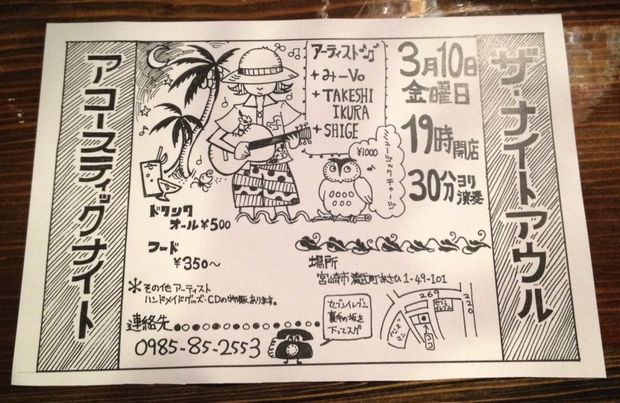 アコースティックナイト
ザ・ナイトアウル
アーティスト
+ みーVo
+ TAKESHI IKURA
+ SHIGE
3月10日
金曜日
19時開店
30分ヨリ演奏
ミュージックチャージ
¥1000
ドリンク
オール¥500
フード
¥350〜
*その他アーティスト
ハンドメイドグッズ・CDの物販あります。
連絡先
0985-85-2553
場所
宮崎市清武町あさひ1-49-101
セブンイレブン
裏手の坂を
下ってスグ
269
220
セブンイレブン
ココ